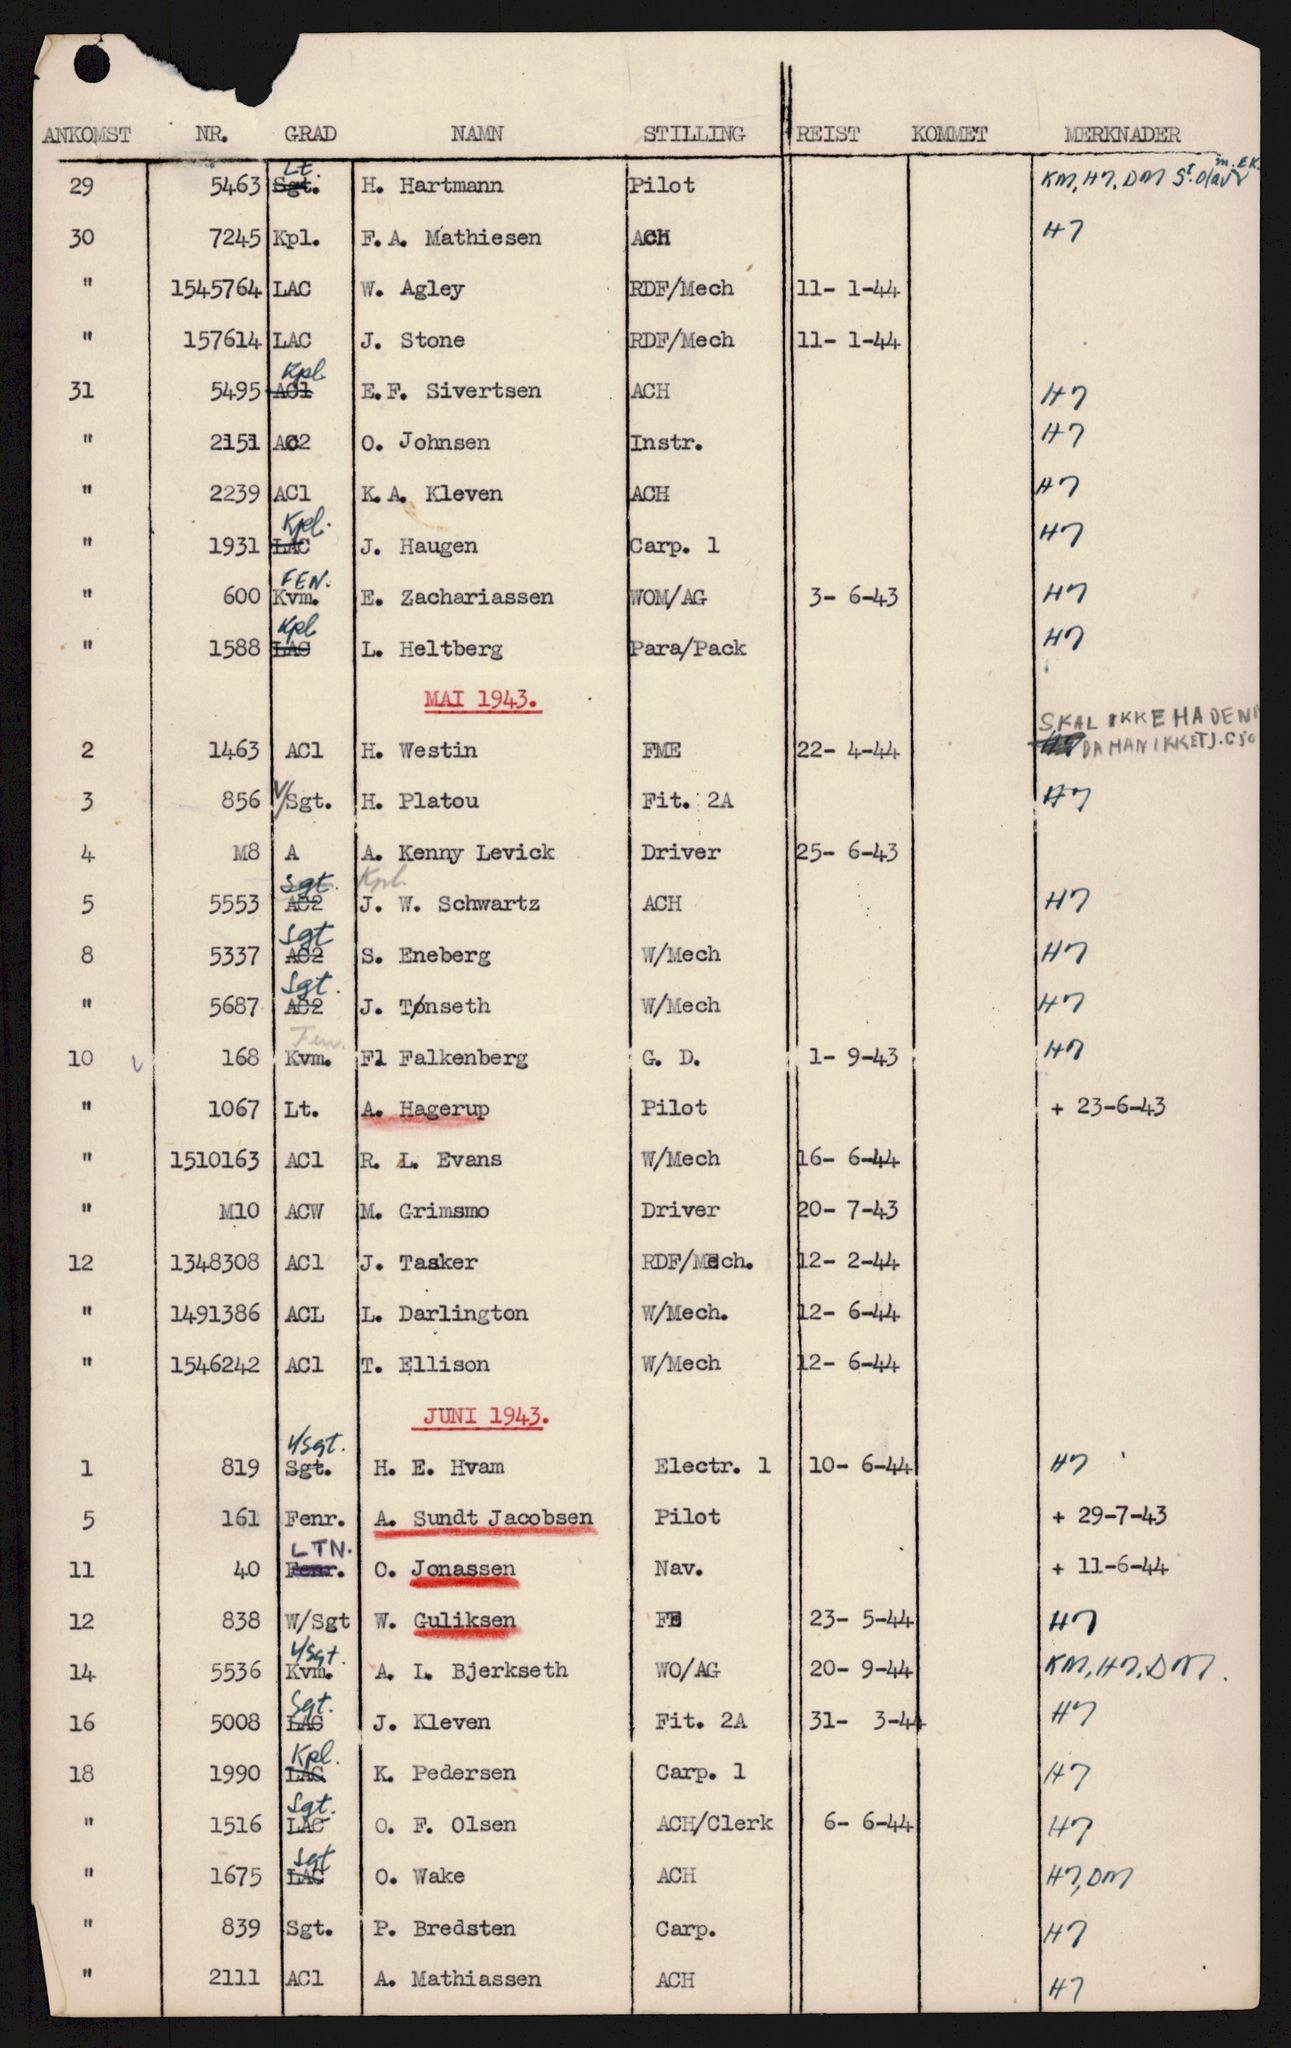 ANKOMST NR. GRAD NAMN STILLING REIST KOMMET MERKNADER
Lt. m. EK.
29 5463 Sgt. H. Hartmann Pilot KM, H7, DM St. Olav
30 7245 Kpl. F.A. Mathiesen ACH H7
" 1545764 LAC W. Agley RDF/Mech 11- 1-44
" 157614 LAC J. Stone RDF/Mech 11- 1-44
Kpl.
31 5495 AC1 E.F. Sivertsen ACH H7
" 2151 AC2 O. Johnsen Instr. H7
" 2239 AC1 K.A. Kleven ACH H7
Kpl.
" 1931 LAC J. Haugen Carp. 1 H7
FEN.
" 600 Kvm. E. Zachariassen WOM/AG 3- 6-43 H7
Kpl
" 1588 LAC L. Heltberg Para/Pack H7
MAI 1943.
SKAL IKKE HA DEN
2 1463 AC1 H. Westin FME 22- 4-44 H7 DA HAN IKKE TJ.
3 856 V/Sgt. H. Platou Fit. 2A H7
4 M8 A A. Kenny Levick Driver 25- 6-43
Sgt. Kpl.
5 5553 AC2 J. W. Schwartz ACH H7
Sgt
8 5337 AC2 S. Eneberg W/Mech H7
Sgt.
" 5687 AC2 J. Tønseth W/Mech H7
Fen.
10 V 168 Kvm. Fl Falkenberg G. D. 1- 9-43 H7
" 1067 Lt. A. Hagerup Pilot + 23-6-43
" 1510163 AC1 R. L. Evans W/Mech 16- 6-44
" M10 ACW M. Grimsmo Driver 20- 7-43
12 1348308 AC1 J. Tasker RDF/Mech. 12- 2-44
" 1491386 ACL L. Darlington W/Mech. 12- 6-44
" 1546242 AC1 T. Ellison W/Mech 12- 6-44
JUNI 1943.
V/Sgt.
1 819 Sgt. H. E. Hvam Electr. 1 10- 6-44 H7
5 161 Fenr. A. Sundt Jacobsen Pilot + 29-7-43
LTN.
11 40 Fenr. O. Jonassen Nav. + 11-6-44
12 838 W/Sgt W. Guliksen FE 23- 5-44 H7
V/Sgt.
14 5536 Kvm. A. I. Bjerkseth WO/AG 20- 9-44 KM, H7, DM.
Sgt.
16 5008 LAC J. Kleven Fit. 2A 31- 3-44 H7
Kpl.
18 1990 LAC K. Pedersen Carp. 1 H7
Sgt.
" 1516 LAC O. F. Olsen ACH/Clerk 6- 6-44 H7
Sgt
" 1675 LAC O. Wake ACH H7, DM
" 839 Sgt. P. Bredsten Carp. H7
" 2111 AC1 A. Mathiassen ACH H7